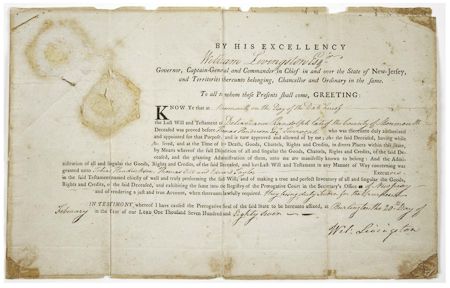 BY HIS EXCELLENCY
William Livingston Esqr.
Governor, Captain-General and Commander in Chief in and over the State of New-Jersey,
and Territories thereunto belonging, Chancellor and Ordinary in the same.
To all to whom these Presents shall come, GREETING:
KNOW Ye that at Monmouth on the Day of the Date hereof
the Last Will and Testament of Randolph late of the County of Monmouth
Deceased was proved before Esqr. Surrogate who was thereunto duly authorised
and appointed for that Purpose; and is now approved and allowed of by me; the said Deceased, having while
he lived, and at the Time of his Death, Goods, Chattels, Rights and Credits, in divers Places within this State,
by Means whereof the full Disposition of all and singular the Goods, Chattels, Rights and Credits, of the said De-
ceased, and the granting Administration of them, unto me are manifestly known to belong: And the Admi-
nistration of all and singular the Goods, Rights and Credits, of the said Deceased, and his Last Will and Testament in any Manner of Way concerning was
granted unto Thomas and Execut
in the said Testament named chiefly of well and truly performing the said Will, and of making a true and perfect Inventory of all and singular the Goods,
Rights and Credits, of the said Deceased, and exhibiting the same into the Registry of the Prerogative Court in the Secretary's Office
and of rendering a just and true Account, when thereunto lawfully required. They being duly
IN TESTIMONY, whereof I have caused the Prerogative Seal of the said State to be hereunto affixed, at Burlington the 20th Day of
February in the Year of our Lord One Thousand Seven Hundred and Eighty Seven
Wil. Livingston